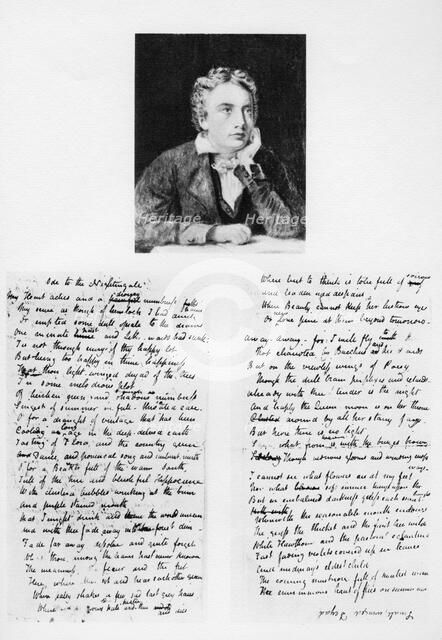 Heritage
Heritage
Ode to the Nightingale
My Heart aches and a drowsy numbness
My sense as though of hemlock I had drunk
Or emptied some dull opiate to the drains
One minute past and Lethe wards had sunk
Tis not through envy of thy happy lot
But being too happy in thine happiness
That thou light winged dryad of the trees
In some melodious plot
Of beechen green and shadows numberless
Singest of summer in full-throated ease.
O for a draught of vintage that has been
Cooling age in the deep-delved earth
Tasting of Flora and the country green
Dance, and provencal song and sunburnt mirth
O for a Beaker full of the warm South,
Full of the true and blushful Hippocrene
With bubbles winking at the brim
And purple stained mouth
That I might drink and leave the world unseen
And with thee fade away forest dim
Fade far away dissolve and quite forget
What thou among the leaves hast never known
The weariness, the fever and the fret
Here, where men sit and hear each other groan
Where palsy shakes a few sad last grey hairs
Where youth grows pale and thin and dies
Where but to think is to be full of sorrow
And leaden eyed despairs
Where Beauty cannot keep her lustrous eyes
Or new Love pine at them beyond tomorrow.
Away-away-for I will fly to thee
Not charioted by Bacchus and his Pards
But on the viewless wings of Poesy
Through the dull brain perplexes and retards
Already with thee! tender is the night
And haply the Queen moon is on her throne
Clustered around by all her starry fays
But here there is no light
Save what from heaven is with the breezes blown
Through verdurous glooms and winding mossy
ways.
I cannot see what flowers are at my feet
Nor what soft incense hangs upon the
But in embalmed darkness guess each sweet
Wherewith the seasonable month endows
The grass the thicket and the fruit tree wild
White Hawthorn and the pastoral eglantine
Fast fading violets covered up in leaves
And midmays eldest child
The coming muskrose full of
The murmurous haunt of flies on summer eves